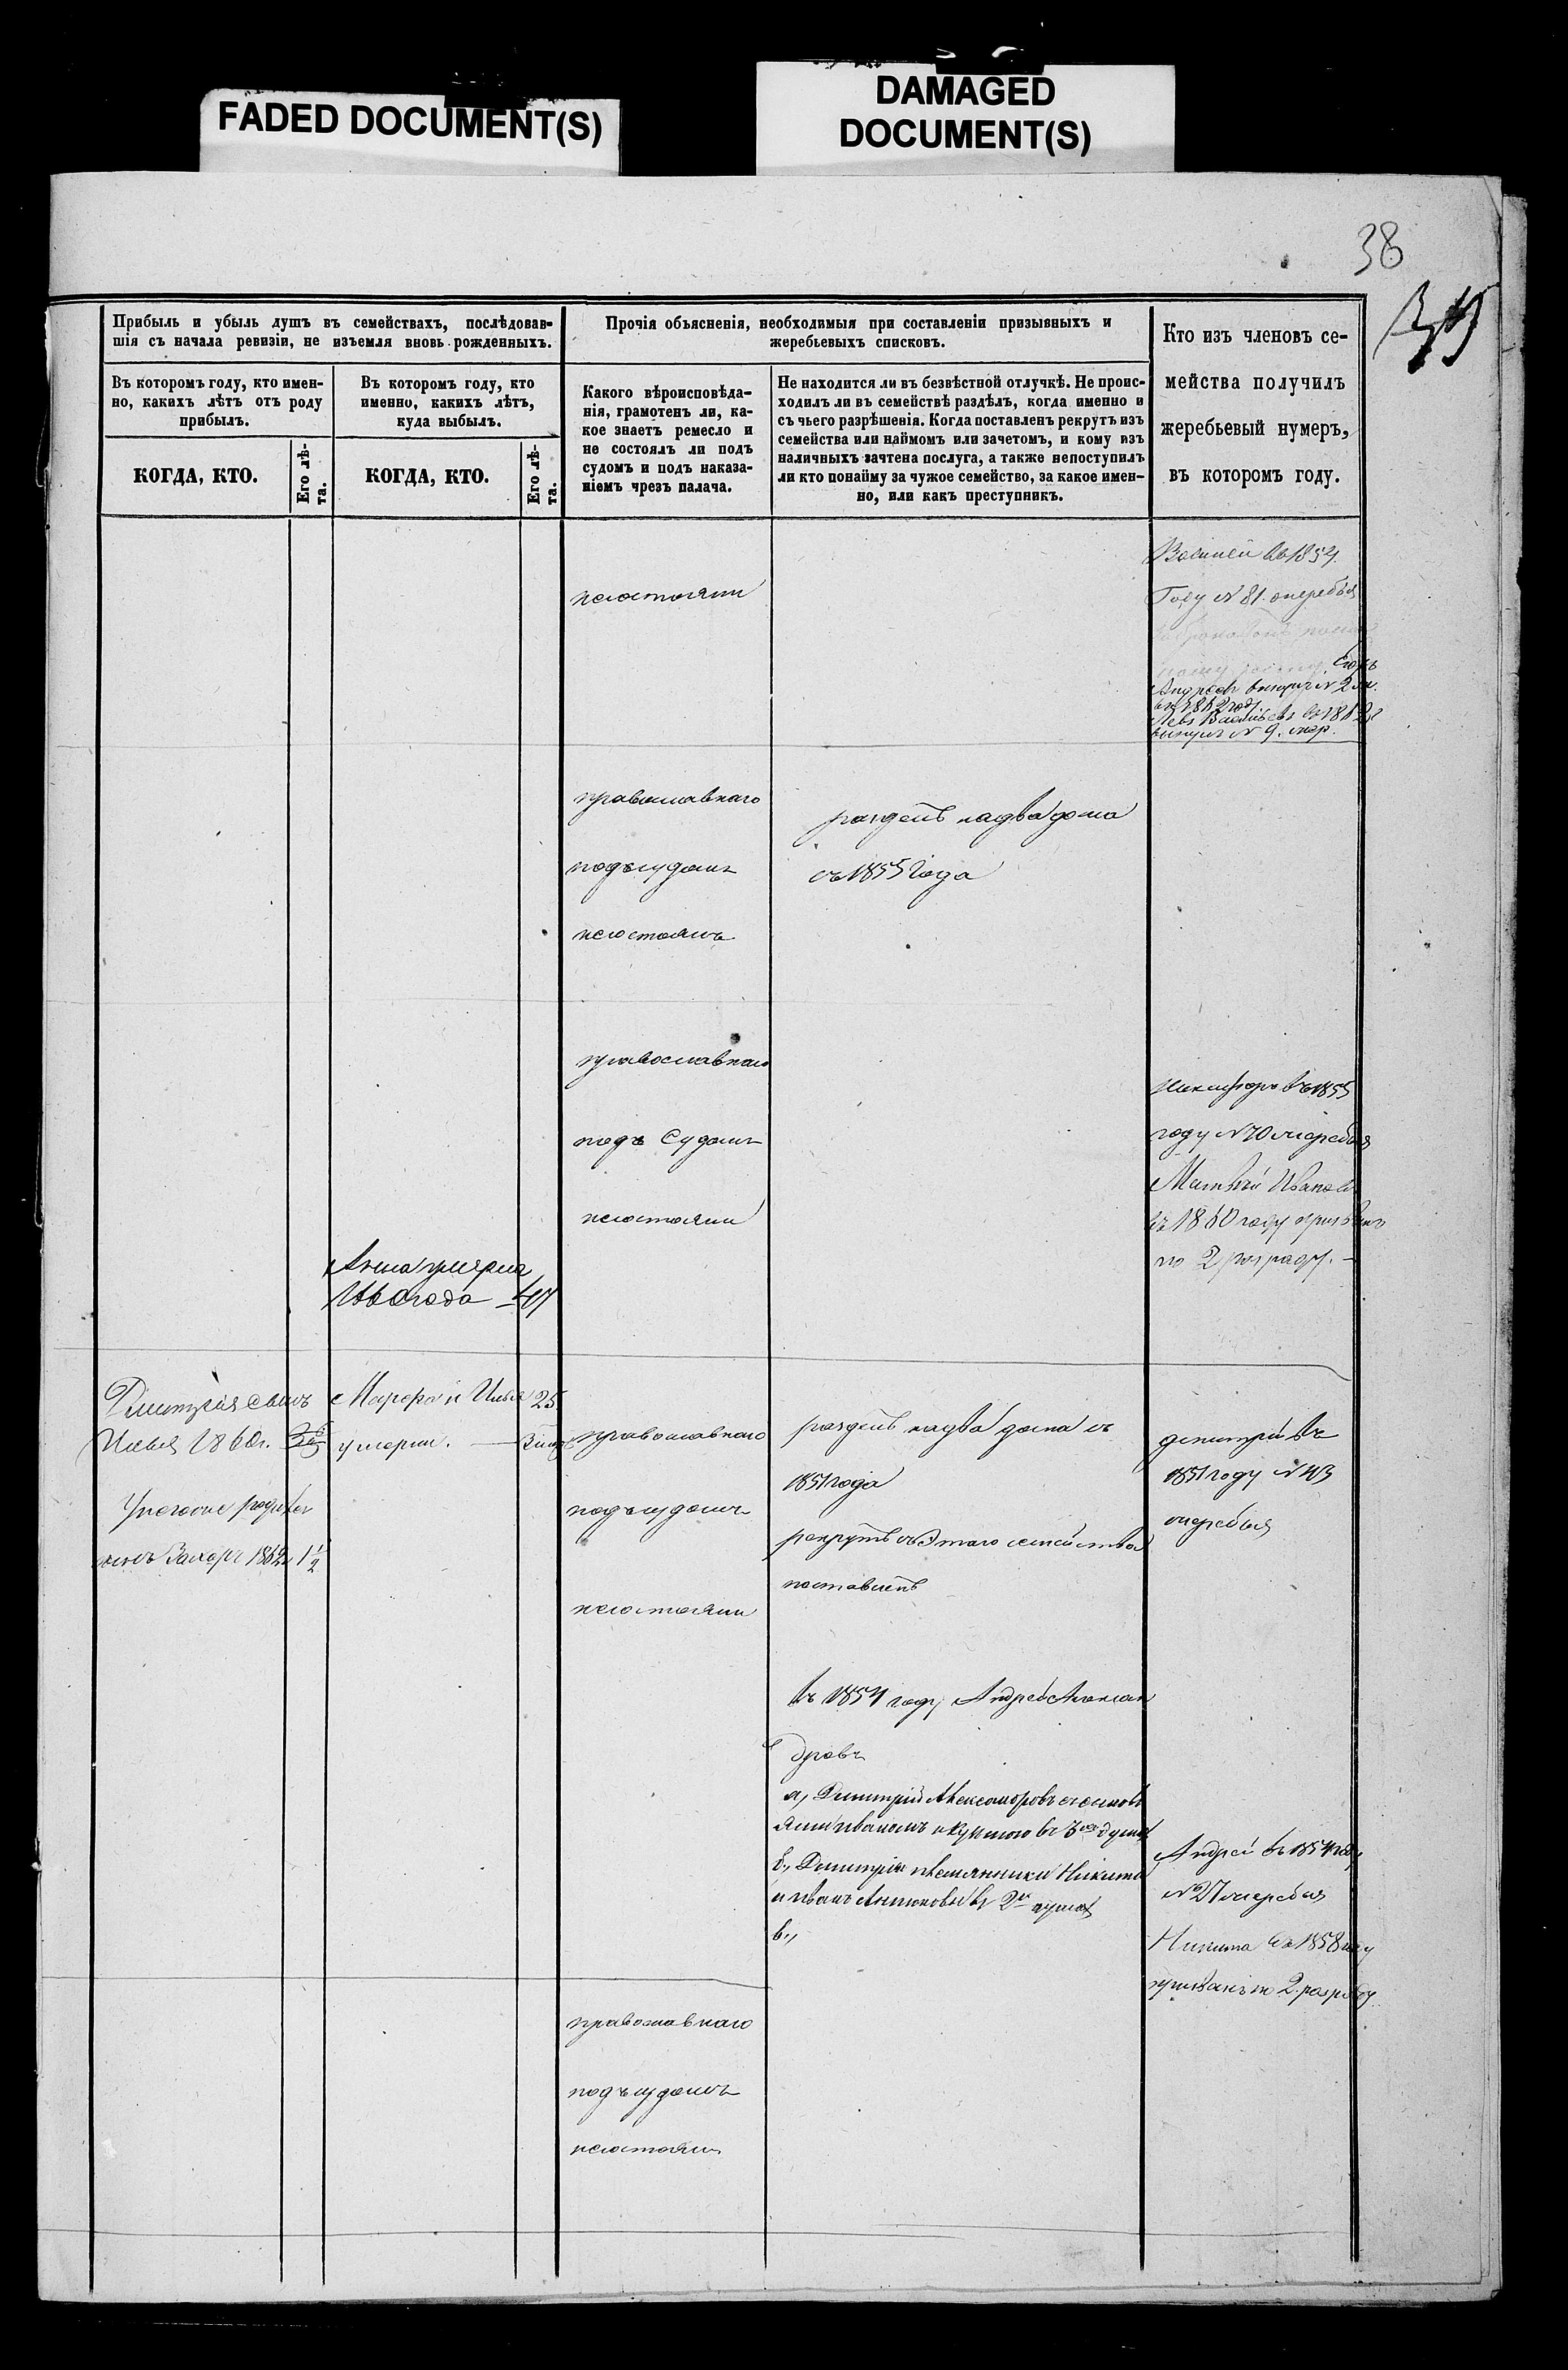 FADED DOCUMENT(S)
DAMAGED
DOCUMENT(S)
38
Прибыль и убыль душъ въ семействахъ, послѣдовав-
шія съ начала ревизіи, не изъемля вновь рожденныхъ.
Прочія объясненія, необходимыя при составленіи призывныхъ и
жеребьевыхъ списковъ.
Кто изъ членовъ се-
мейства получилъ
жеребьевый нумеръ,
въ которомъ году.
Въ которомъ году, кто имен-
но, какихъ лѣтъ отъ роду
прибылъ.
Въ которомъ году, кто
именно, какихъ лѣтъ,
куда выбылъ.
Какого вѣроисповѣда-
нія, грамотенъ ли, ка-
кое знаетъ ремесло и
не состоялъ ли подъ
судомъ и подъ наказа-
ніемъ чрезъ палача.
Не находится ли въ безвѣстной отлучкѣ. Не проис-
ходилъ ли въ семействѣ раздѣлъ, когда именно и
съ чьего разрѣшенія. Когда поставленъ рекрутъ изъ
семейства или наймомъ или зачетомъ, и кому изъ
наличныхъ зачтена послуга, а также непоступилъ
ли кто понайму за чужое семейство, за какое имен-
но, или какъ преступникъ.
КОГДА, КТО.
Его лѣ-
та.
КОГДА, КТО.
Его лѣ-
та.
несостояли
Василей въ 1854
Году № 81
Андреевъ № 2
въ 1862 год.
Левъ Васильевъ въ 1862
№ 9.
православнаго
подъ судомъ
несостоялъ
раздѣлъ на два дома
съ 1855 года
православнаго
подъ Судомъ
несостояли
Никифоръ въ 1855
году № 70 жеребья
Матвѣй Ивановъ
въ 1860 году призванъ
по 2 разряду.
Анна умерла
1860 года 47
Дмитрія сынъ
Илья 1860 г.
сынъ Захаръ 1862 1 1/2
Марфа и Илья 25
умерли.
православнаго
подъ судомъ
несостояли
раздѣлъ на два дома съ
1851 года
рекрутъ съ Этаго семейства
поставленъ
въ 1854 году Андрей Алексан
дровъ
а, Димитрій Александровъ съ сыновь
ями Иваномъ въ 3 душах
б., Димитрія племянники Никита
и Иванъ Антоновы въ 2 душах
в.,
димитрій въ
1851 году № 43
жеребья
Андрей въ 1854 году
№ 27 жеребья
Никита въ 1858 году
призванъ по 2 разряду
православнаго
подъ судомъ
несостояли